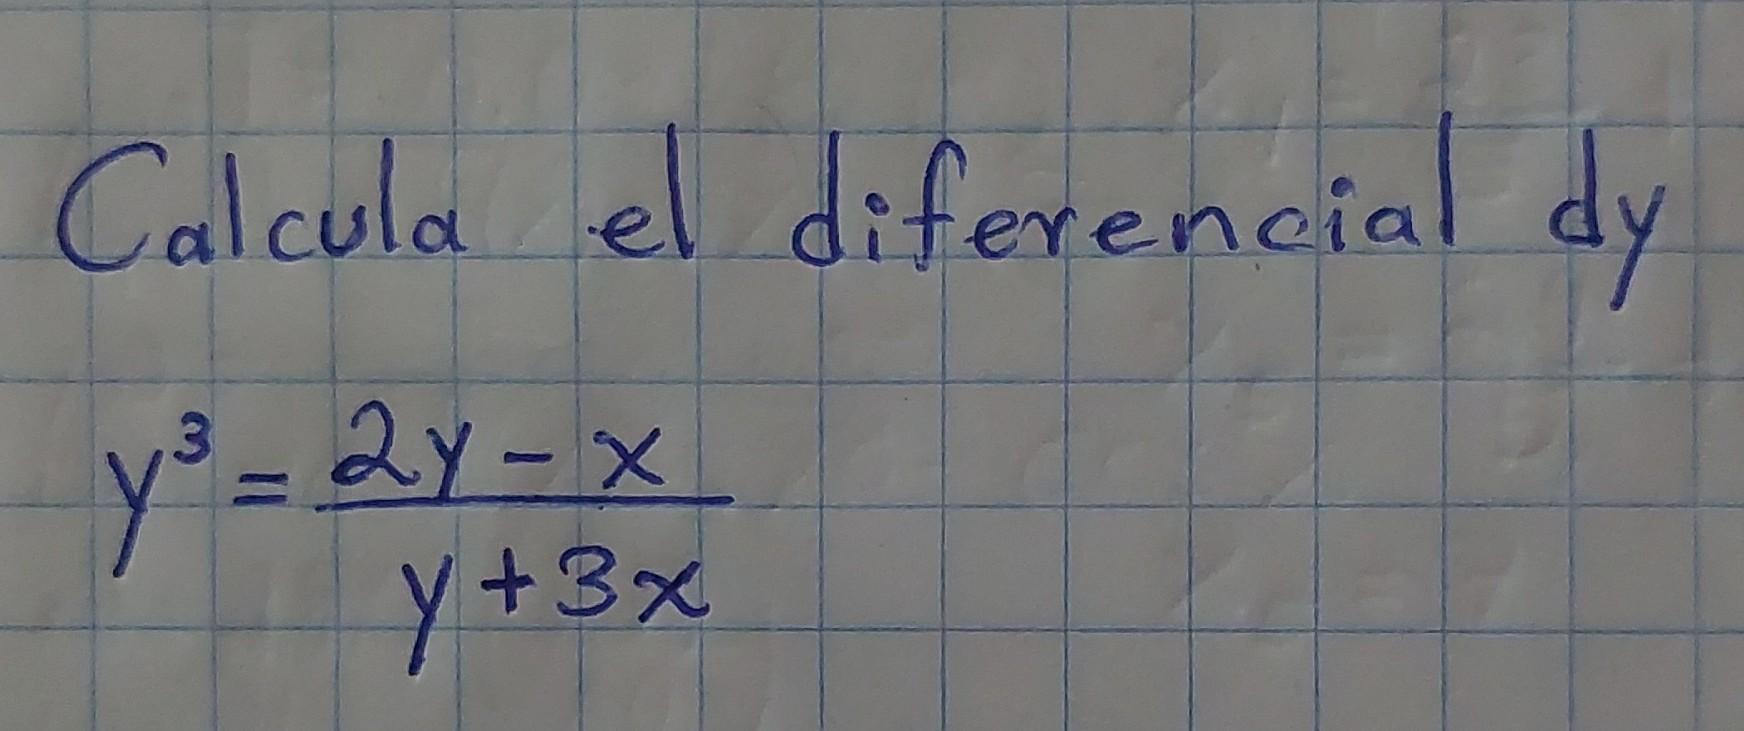 Calcula el diferencial dy
y³ = \frac{2y - x}{y + 3x}